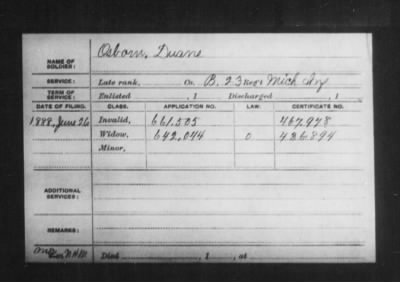 NAME OF SOLDIER: Osborn, Duane
SERVICE: Late rank, Co. B, 23 Reg't Mich Inf
TERM OF SERVICE: Enlisted , 1 Discharged , 1
DATE OF FILING. CLASS. APPLICATION NO. LAW. CERTIFICATE NO.
1888, June 26 Invalid, 661,505 467,978
Widow, 642,044 0 426894
Minor,
ADDITIONAL SERVICES:
REMARKS:
Died , 1 , at